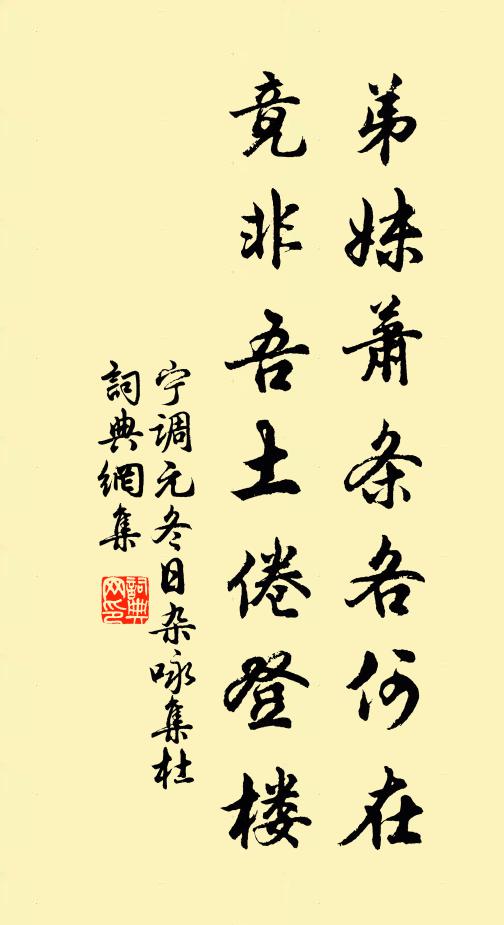 弟妹萧条各何在
竟非吾土倦登楼
宁调元冬日杂咏集杜
詞典網集
詞典